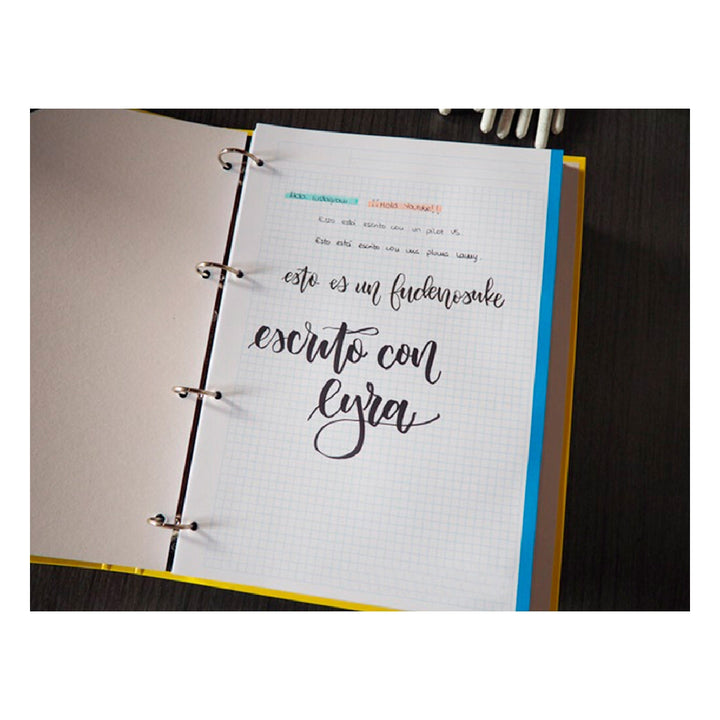 Hola Instagram ! ¡¡Hola Youtube!!
Esto está escrito con un pilot V5.
Esto está escrito con una pluma Lamy.
esto es un fudenosuke
escrito con
lyra